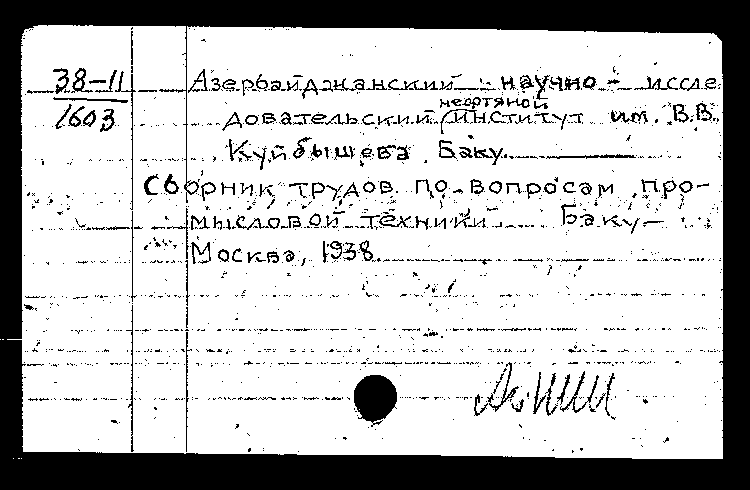 38-11
1603
Азербайджанский научно - иссле
нефтяной
довательский институт им. В.В.
Куйбышева Баку.
Сборник трудов по вопросам про-
мысловой техники. Баку-
Москва, 1938.